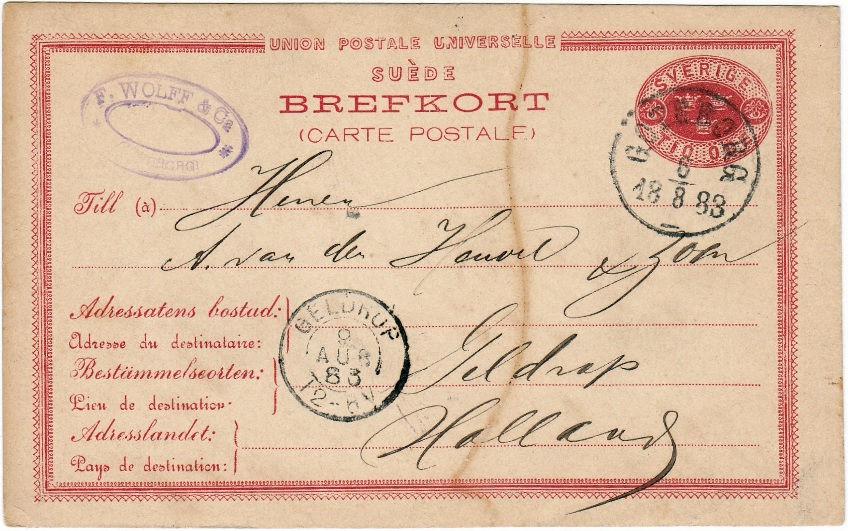 UNION POSTALE UNIVERSELLE
SUÈDE
BREFKORT
(CARTE POSTALE)
F. WOLFF & Co
SVERIGE
TIO ÖRE
GÖTEBORG
6
18 8 83
Till (à)
Herren
A. van den Heuvel & Zoon
Adressatens bostad:
Adresse du destinataire:
GELDROP
9
AUG
83
12-
Geldrop
Bestämmelseorten:
Lieu de destination:
Holland
Adresslandet:
Pays de destination: